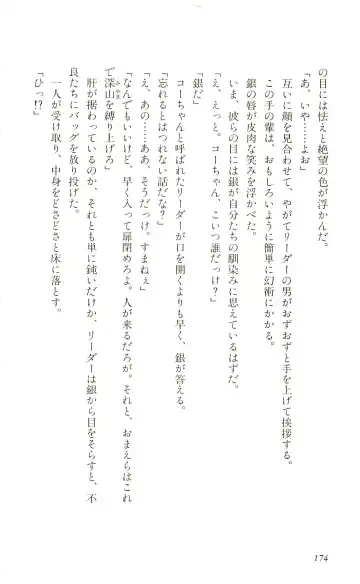 の目には怯えと絶望の色が浮かんだ。
「あ、いや……よお」
互いに顔を見合わせて、やがてリーダーの男がおずおずと手を上げて挨拶する。
この手の輩は、おもしろいように簡単に幻術にかかる。
銀の唇が皮肉な笑みを浮かべた。
いま、彼らの目には銀が自分たちの馴染みに思えているはずだ。
「え、えっと。コーちゃん、こいつ誰だっけ？」
「銀だ」
コーちゃんと呼ばれたリーダーが口を開くよりも早く、銀が答える。
「忘れるとはつれない話だな？」
「え、あの……ああ、そうだっけ。すまねぇ」
「なんでもいいけど、早く入って扉閉めろよ。人が来るだろが。それと、おまえらはこれ
で深山を縛り上げろ」
みやま
肝が据わっているのか、それとも単に鈍いだけか、リーダーは銀から目をそらすと、不
良たちにバッグを放り投げた。
一人が受け取り、中身をどさどさと床に落とす。
「ひっ!?」
174